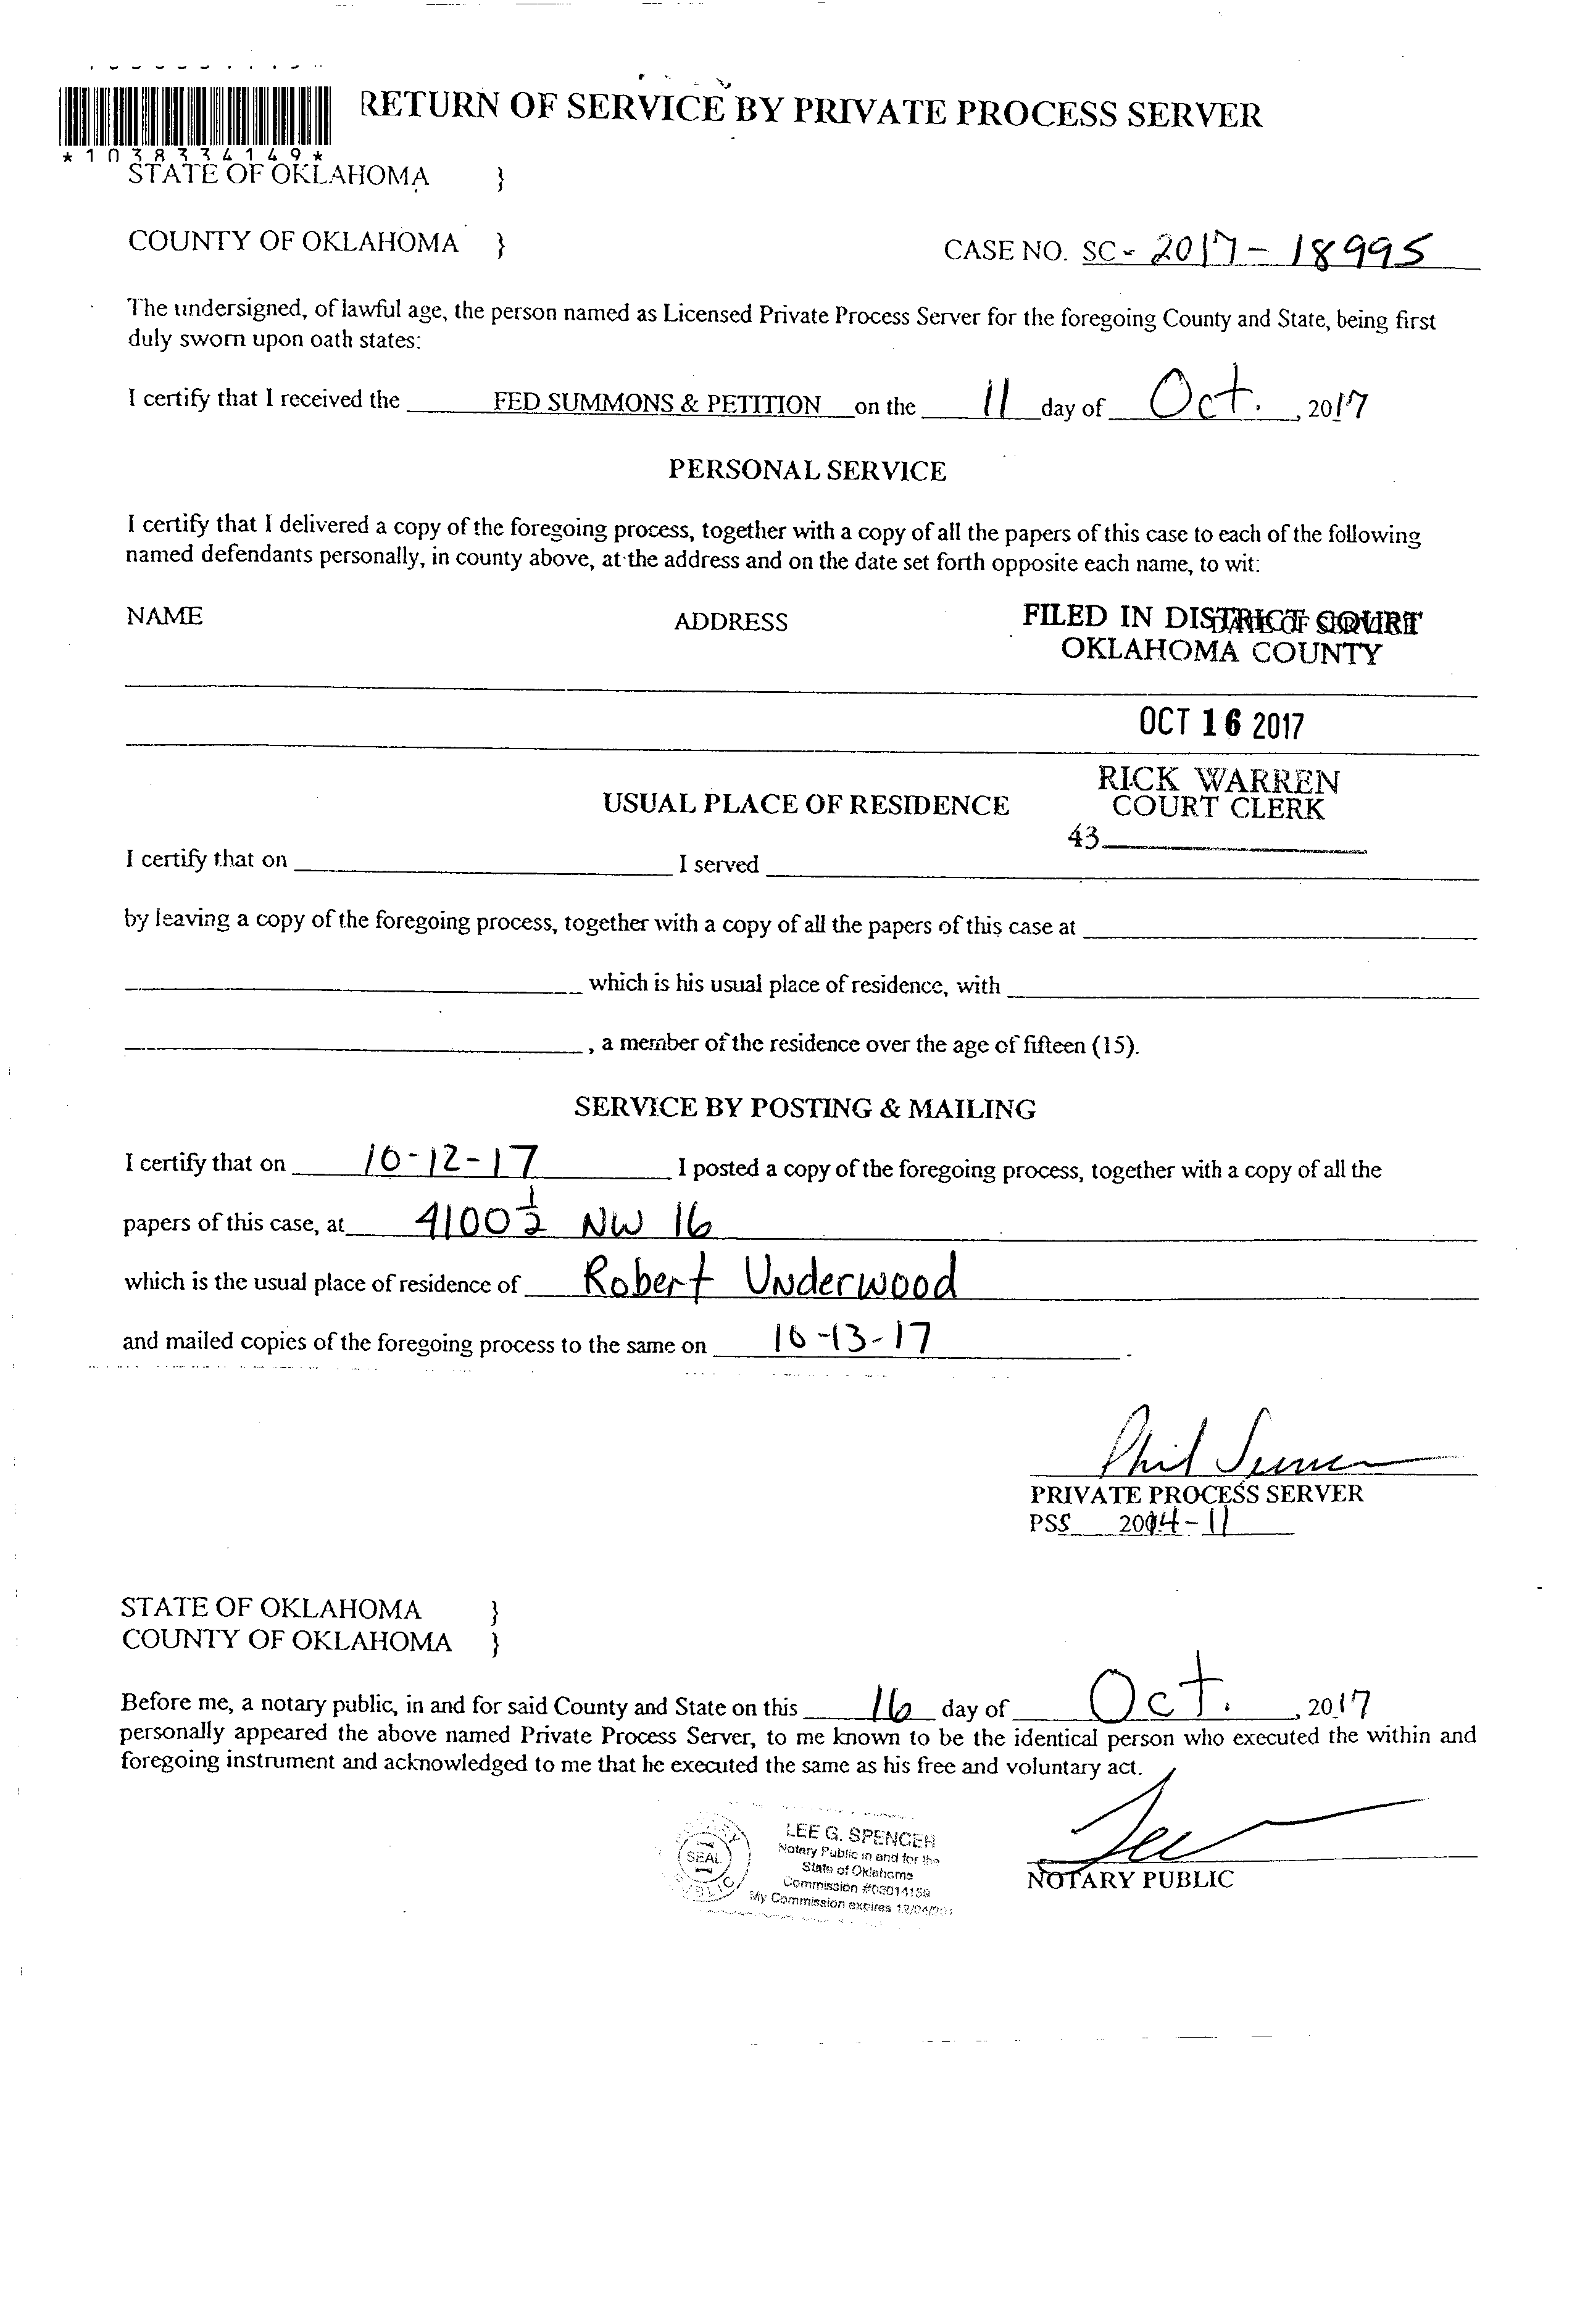 RETURN OF SERVICE BY PRIVATE PROCESS SERVER
*1038334149*
STATE OF OKLAHOMA }
COUNTY OF OKLAHOMA }
CASE NO. SC - 2017 - 18995
The undersigned, of lawful age, the person named as Licensed Private Process Server for the foregoing County and State, being first
duly sworn upon oath states:
I certify that I received the FED SUMMONS & PETITION on the 11 day of Oct. , 2017
PERSONAL SERVICE
I certify that I delivered a copy of the foregoing process, together with a copy of all the papers of this case to each of the following
named defendants personally, in county above, at the address and on the date set forth opposite each name, to wit:
NAME ADDRESS DATE OF SERVICE
FILED IN DISTRICT COURT
OKLAHOMA COUNTY
OCT 16 2017
RICK WARREN
COURT CLERK
43
USUAL PLACE OF RESIDENCE
I certify that on I served
by leaving a copy of the foregoing process, together with a copy of all the papers of this case at
which is his usual place of residence, with
, a member of the residence over the age of fifteen (15).
SERVICE BY POSTING & MAILING
I certify that on 10-12-17 I posted a copy of the foregoing process, together with a copy of all the
papers of this case, at 4100 1/2 NW 16
which is the usual place of residence of Robert Underwood
and mailed copies of the foregoing process to the same on 10-13-17 .
Phil
PRIVATE PROCESS SERVER
PSS 2014-11
STATE OF OKLAHOMA }
COUNTY OF OKLAHOMA }
Before me, a notary public, in and for said County and State on this 16 day of Oct. , 2017
personally appeared the above named Private Process Server, to me known to be the identical person who executed the within and
foregoing instrument and acknowledged to me that he executed the same as his free and voluntary act.
SEAL
LEE G. SPENCER
Notary Public in and for the
State of Oklahoma
Commission #03014159
My Commission expires
NOTARY PUBLIC